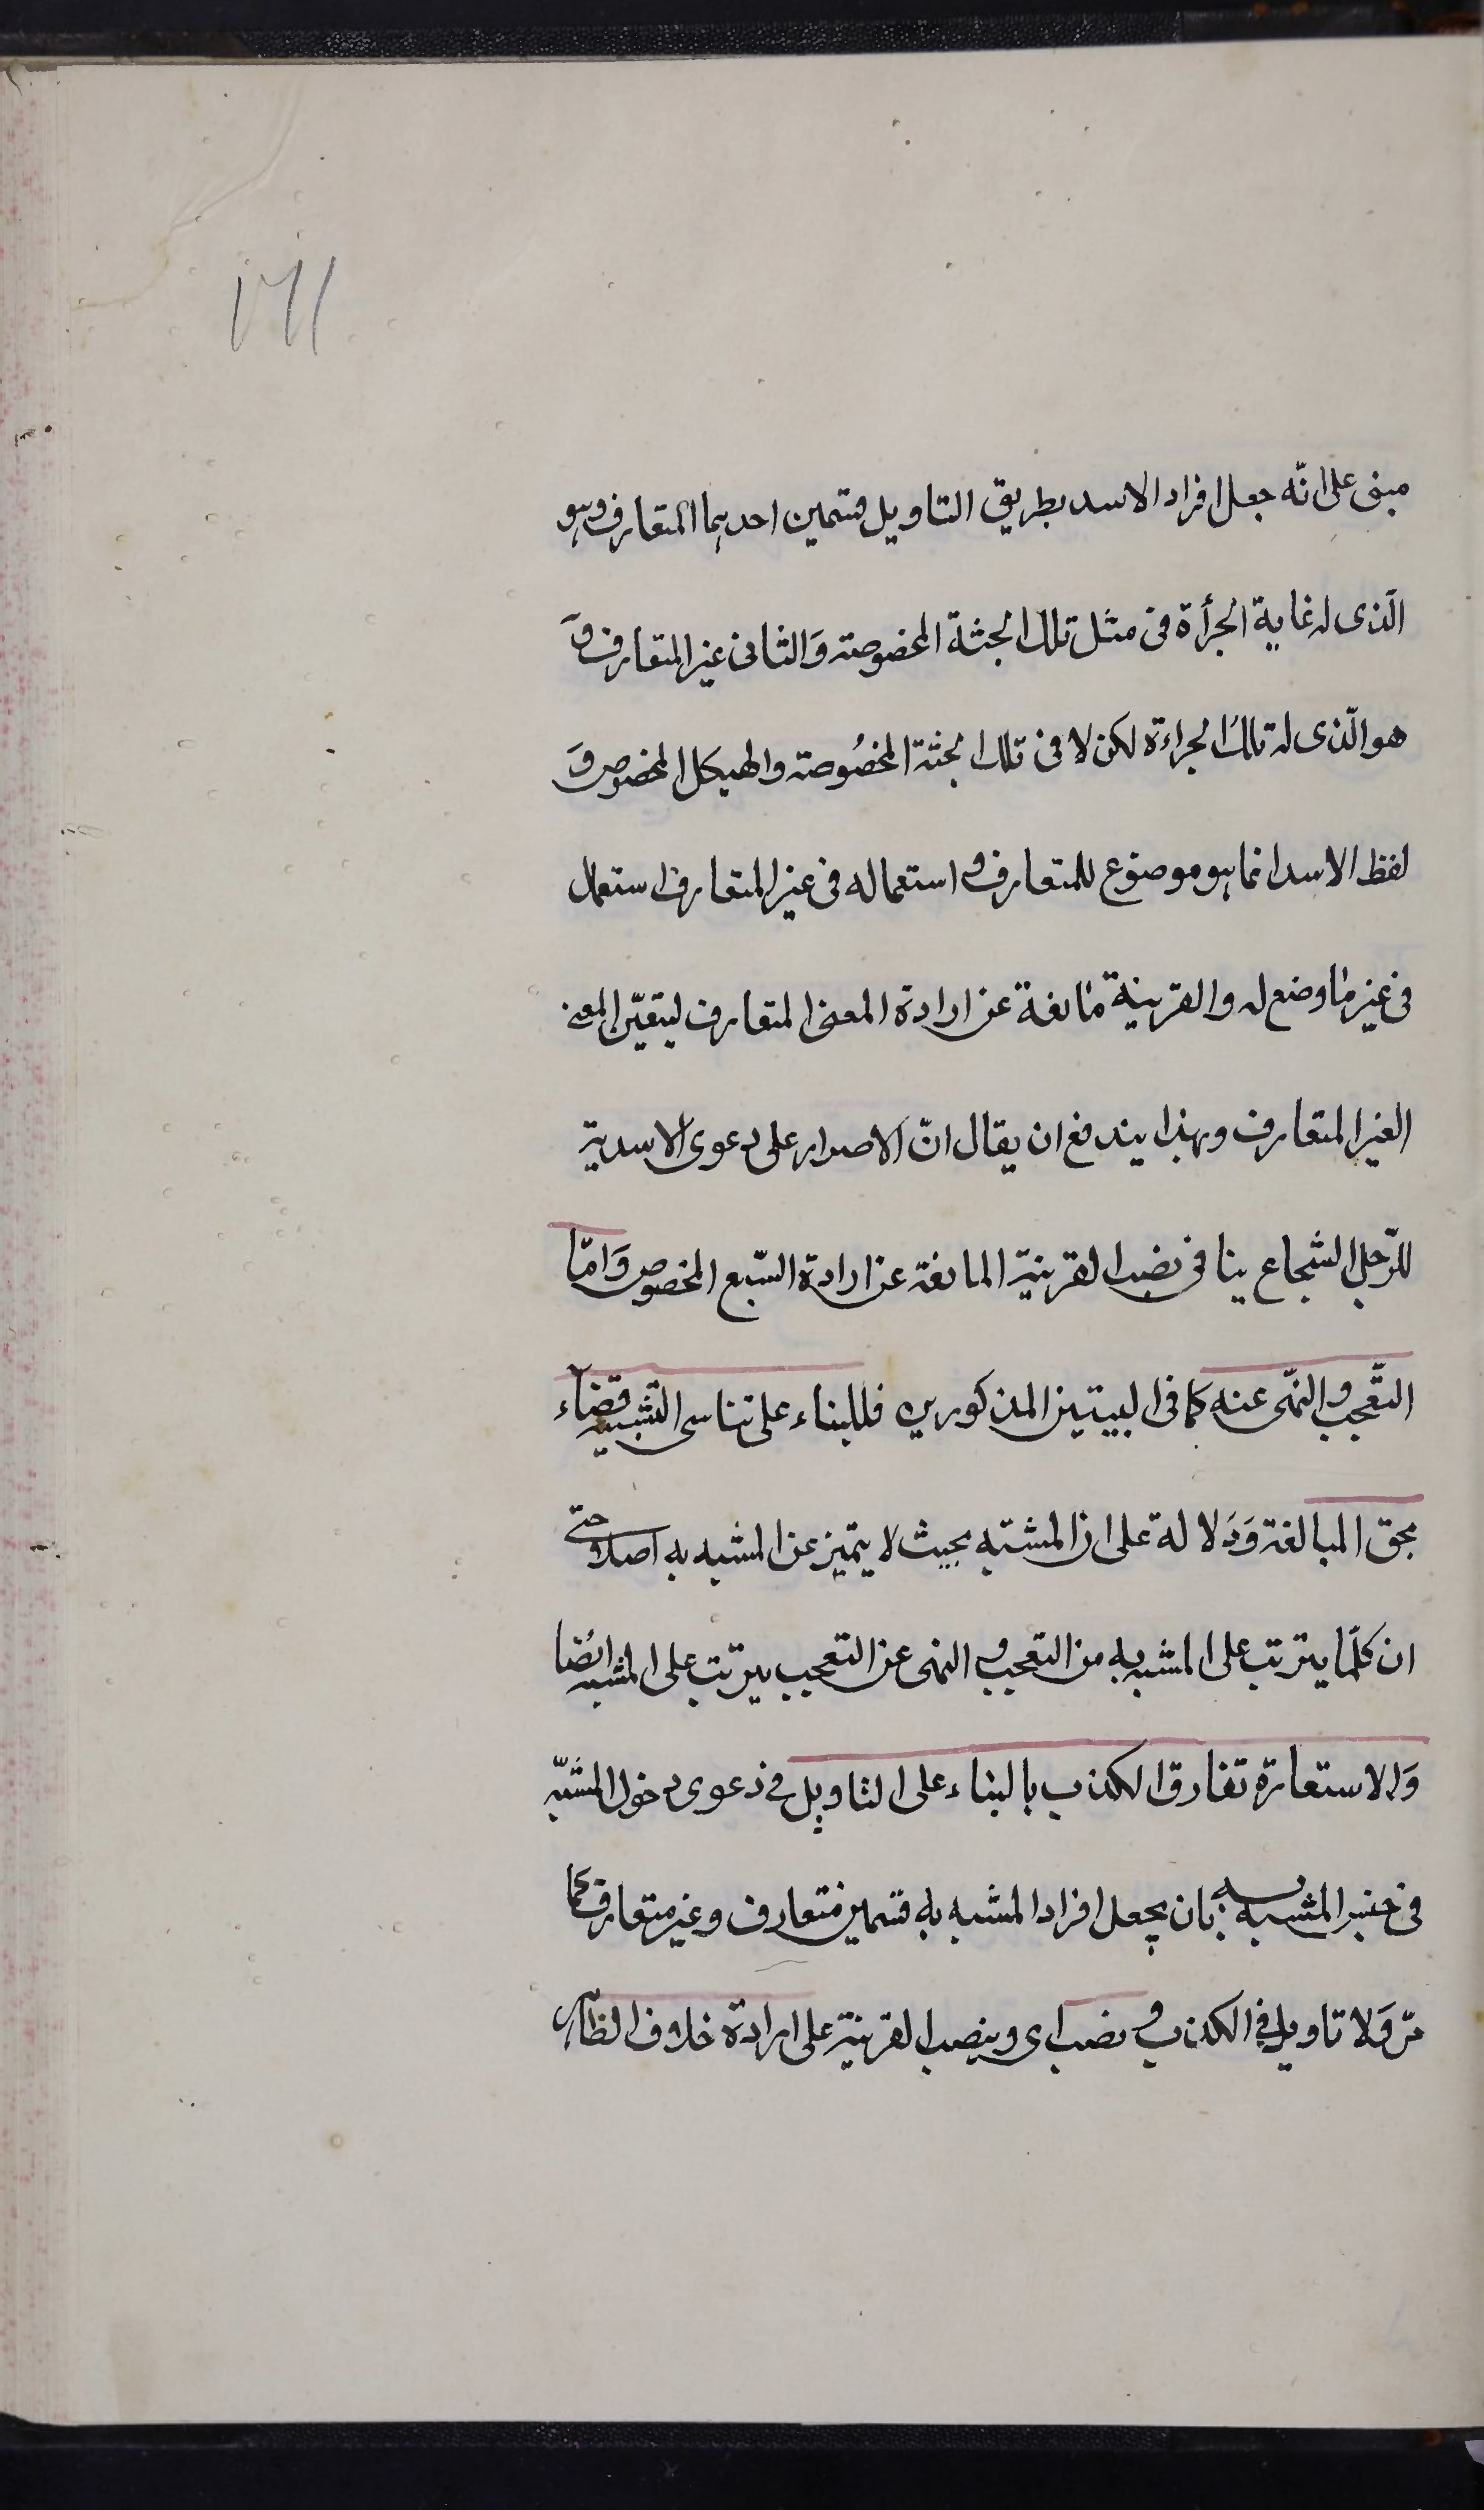 ١٦١
مبنى على انّه جعل افراد الاسد بطريق التاويل قسمين احدهما المتعارف وهو
الّذى له غاية الجرأة فى مثل تلك الجثة المخصوصة وَالثانى غير المتعارف وَ
هو الّذى له تلك الجراءة لكن لا فى تلك الجثة المخصُوصة والهيكل المخصوص وَ
لفظ الاسد انما هو موضوع للمتعارف و استعماله فى غير المتعارف استعمال
فى غير ما وضع له والقرينة مانعة عن ارادة المعنى المتعارف ليتعيّن المعنى
الغير المتعارف وبهذا يندفع ان يقال انّ الاصرار على دعوى الاسدية
للرّجل الشجاع ينافى نصب القرينة المانعة عن ارادة السّبع المخصوص وَامّا
التعّجب والنّهى عنه كما فى البيتين المذكورين فللبناء على تناسى التشبيه قضاء
بحق المبالغة وَدَلالة على ان المشبّه بحيث لا يتميز عن المشبه به اصلا حتى
ان كلّما يترتب على المشبه به من التعجب و النهى عن التعجب يترتب على المشبه ايضا
وَالاستعارة تفارق الكذب بالبناء على التاويل فى دعوى دخول المشبّه
فى جنس المشبه به بان يجعل افراد المشبه به قسمين متعارف وغير متعارف كما
مرّ وَلا تاويل فى الكذب و نصب اى وبنصب القرينة على ارادة خلاف الظاهر